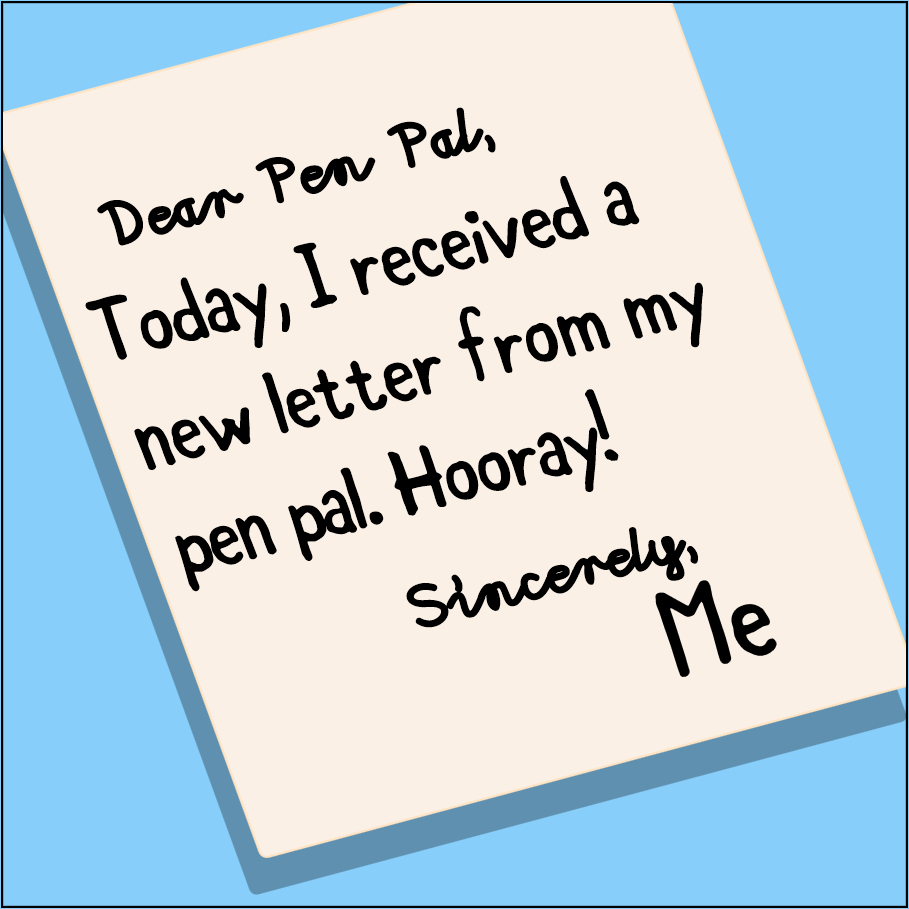 Dear Pen Pal,
Today, I received a
new letter from my
pen pal. Hooray!
Sincerely,
Me